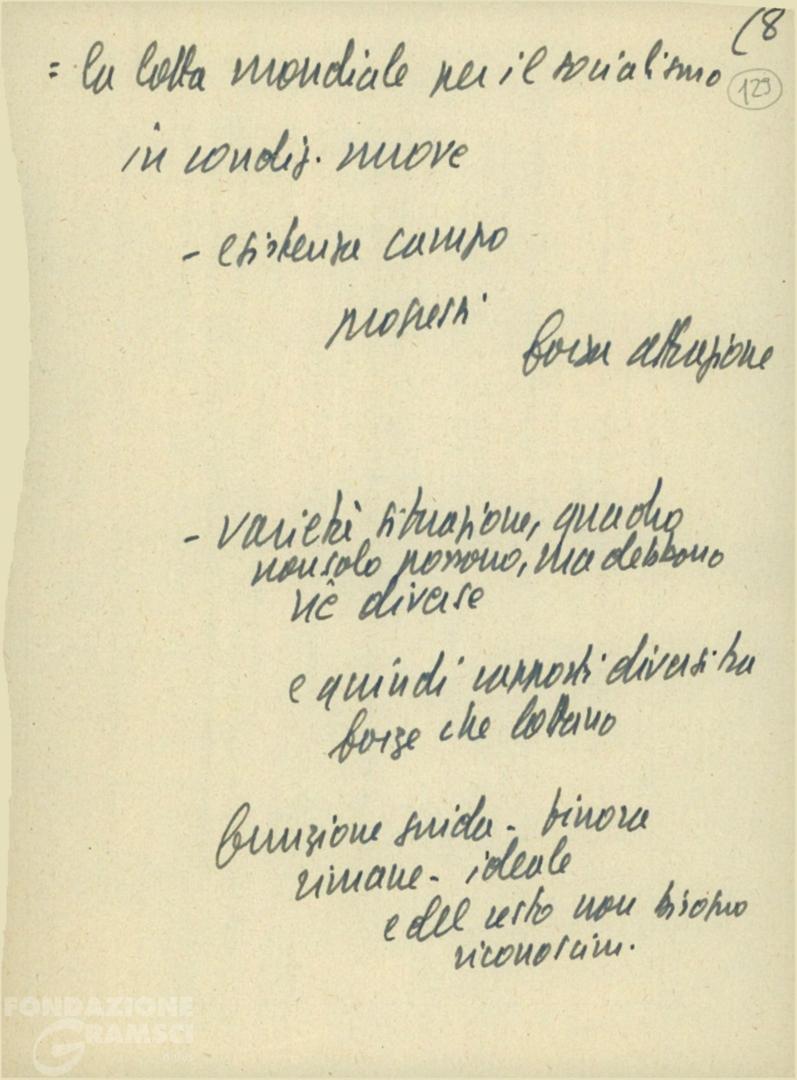 (8
129
= la lotta mondiale per il socialismo
in condiz. nuove
- esistenza campo
progressi
forza attrazione
- varietà situazione, quadro
non solo possono, ma debbono
vie diverse
e quindi rapporti diversi tra
forze che lottano
funzione guida - finora
rimane - ideale
e del resto non bisogno
riconoscim.
FONDAZIONE
GRAMSCI